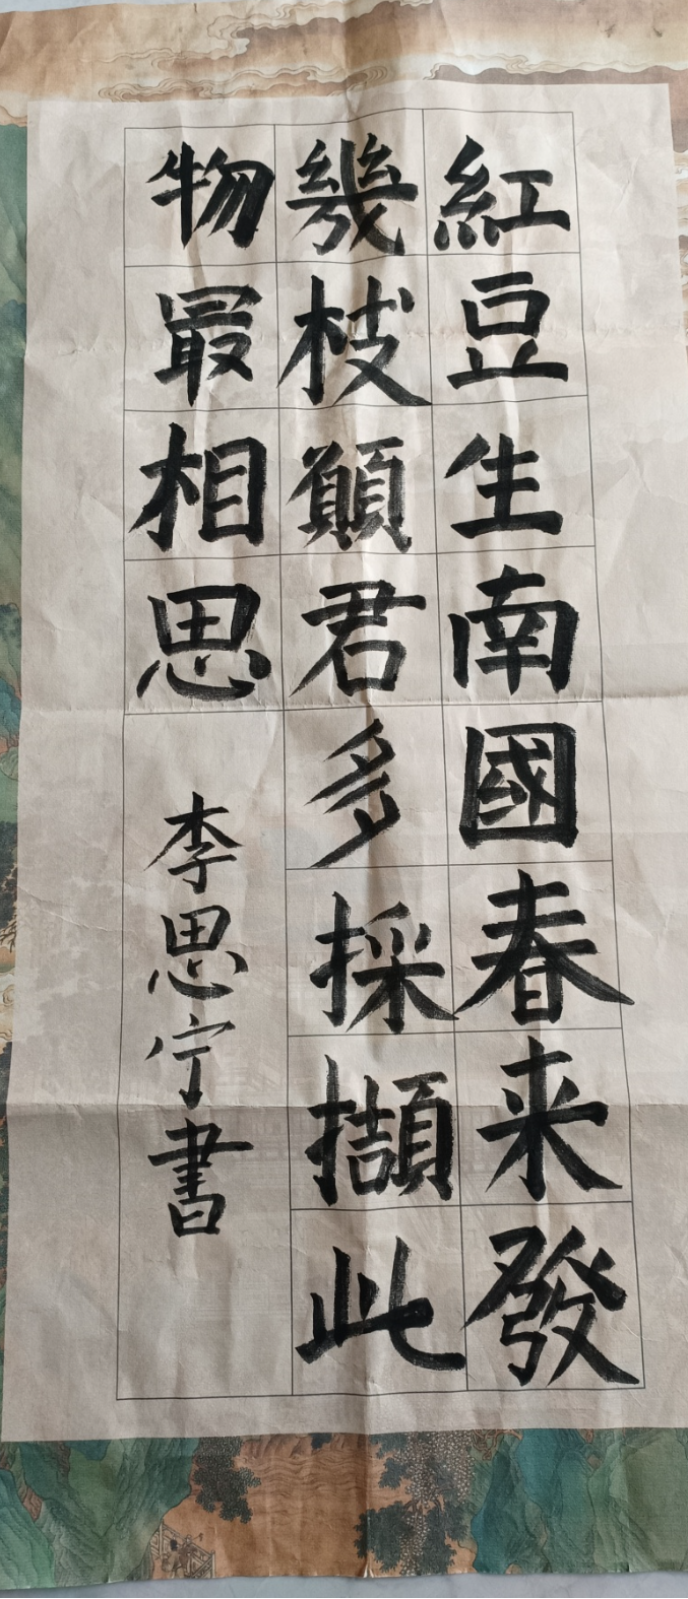 紅豆生南國春来發
幾枝顚君多採擷此
物最相思
李思宁書